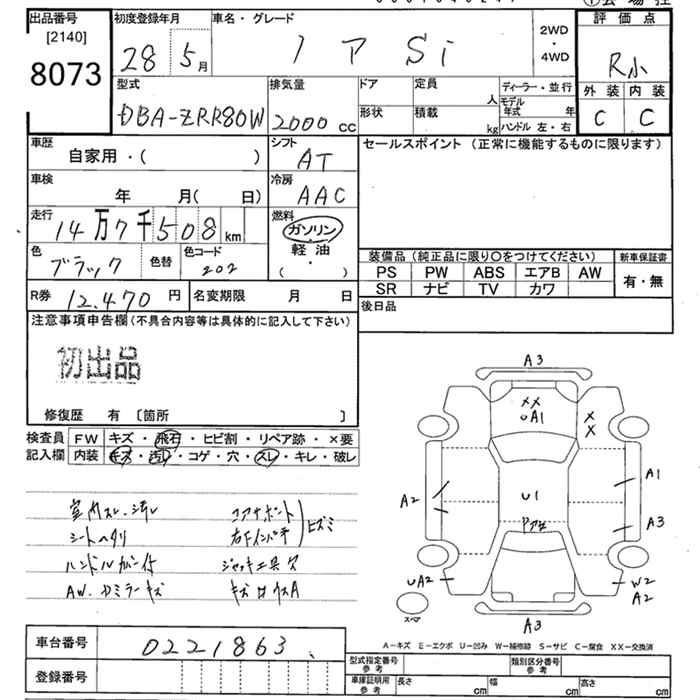 出品番号 初度登録年月 車名・グレード 評価点
[2140]
8073
28 5月 ノア Si
2WD
・
4WD
R小
外装 内装
C C
型式 排気量 ドア 定員 ディーラー・並行
DBA-ZRR80W 2000cc 人 モデル年式 年
形状 積載 kg ハンドル 左・右
車歴 シフト セールスポイント（正常に機能するものに限ります）
自家用・（ ） AT
車検 冷房
年 月（ 日） AAC
走行 燃料
14万7千508km ガソリン
・
軽油
（ ）
色 色替 色コード
ブラック 202
装備品（純正品に限り○をつけてください） 新車保証書
PS PW ABS エアB AW 有・無
SR ナビ TV カワ
R券 12,470円 名変期限 月 日
後日品
注意事項申告欄（不具合内容等は具体的に記入して下さい）
初出品
修復歴 有 〔箇所 〕
検査員 FW キズ・飛石・ヒビ割・リペア跡・×要
記入欄 内装 キズ・汚レ・コゲ・穴・スレ・キレ・破レ
室内スレ、汚レ コアサポート
シートヘタリ 右Fインパネ ヒズミ
ハンドル ジャッキ工具欠
AW、ドミラーキズ
A3
XX
○A1
X
X
A1
A2
U1
A3
UA2
W2
A2
スペア
A3
A－キズ E－エクボ U－凹み W－補修跡 S－サビ C－腐食 XX－交換済
車台番号 0221863
登録番号
型式指定番号 参考 類別区分番号 参考
車庫証明用 参考 長さ cm 幅 cm 高さ cm